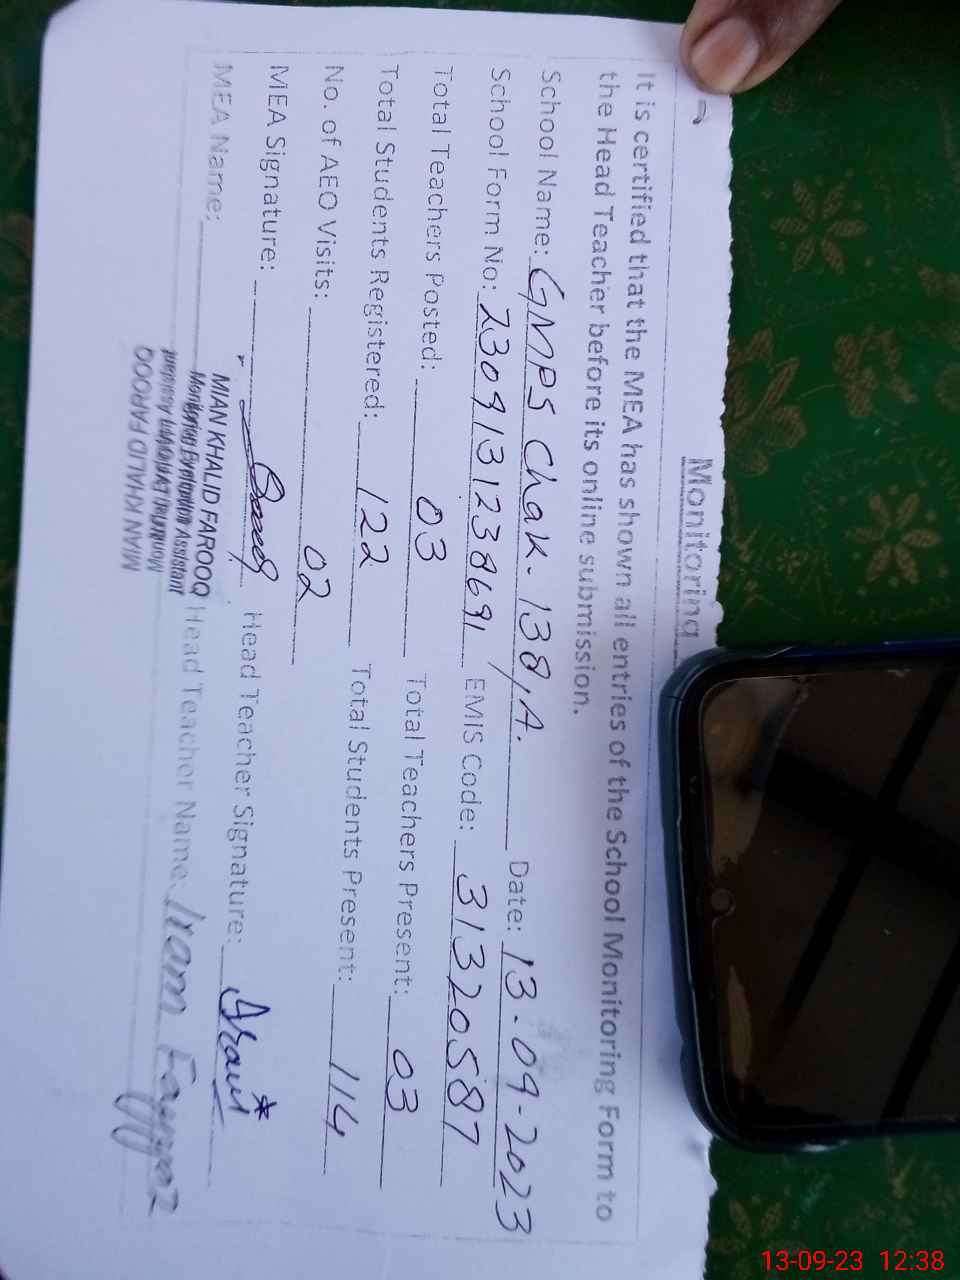 Monitoring
It is certified that the MEA has shown all entries of the School Monitoring Form to
the Head Teacher before its online submission.
School Name: GMPS Chak. 138/A. Date: 13-09-2023
School Form No: 2309131238691 EMIS Code: 31320587
Total Teachers Posted: 03 Total Teachers Present: 03
Total Students Registered: 122 Total Students Present: 114
No. of AEO Visits: 02
MEA Signature: Head Teacher Signature:
MIAN KHALID FAROOQ
MEA Name: Monitoring Evaluation Assistant Head Teacher Name: Iram Fayyaz
MIAN KHALID FAROOQ
13-09-23 12:38